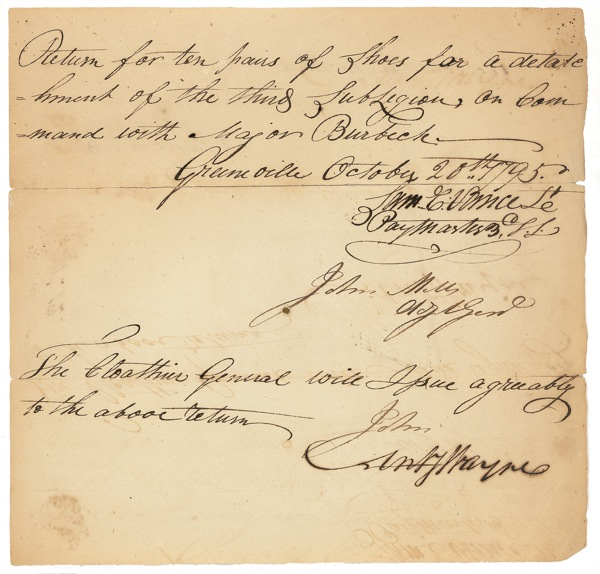 Return for ten pairs of Shoes for a detatc
=hment of the third SubLegion, on Com
=mand with Major Burbeck
Greenville October 20th 1795.
Sam C Vance Lt
Paymaster 3d S L
John Mills
Adjt Genl
The Cloathier General will Issue agreeably
to the above return
John
Anty Wayne